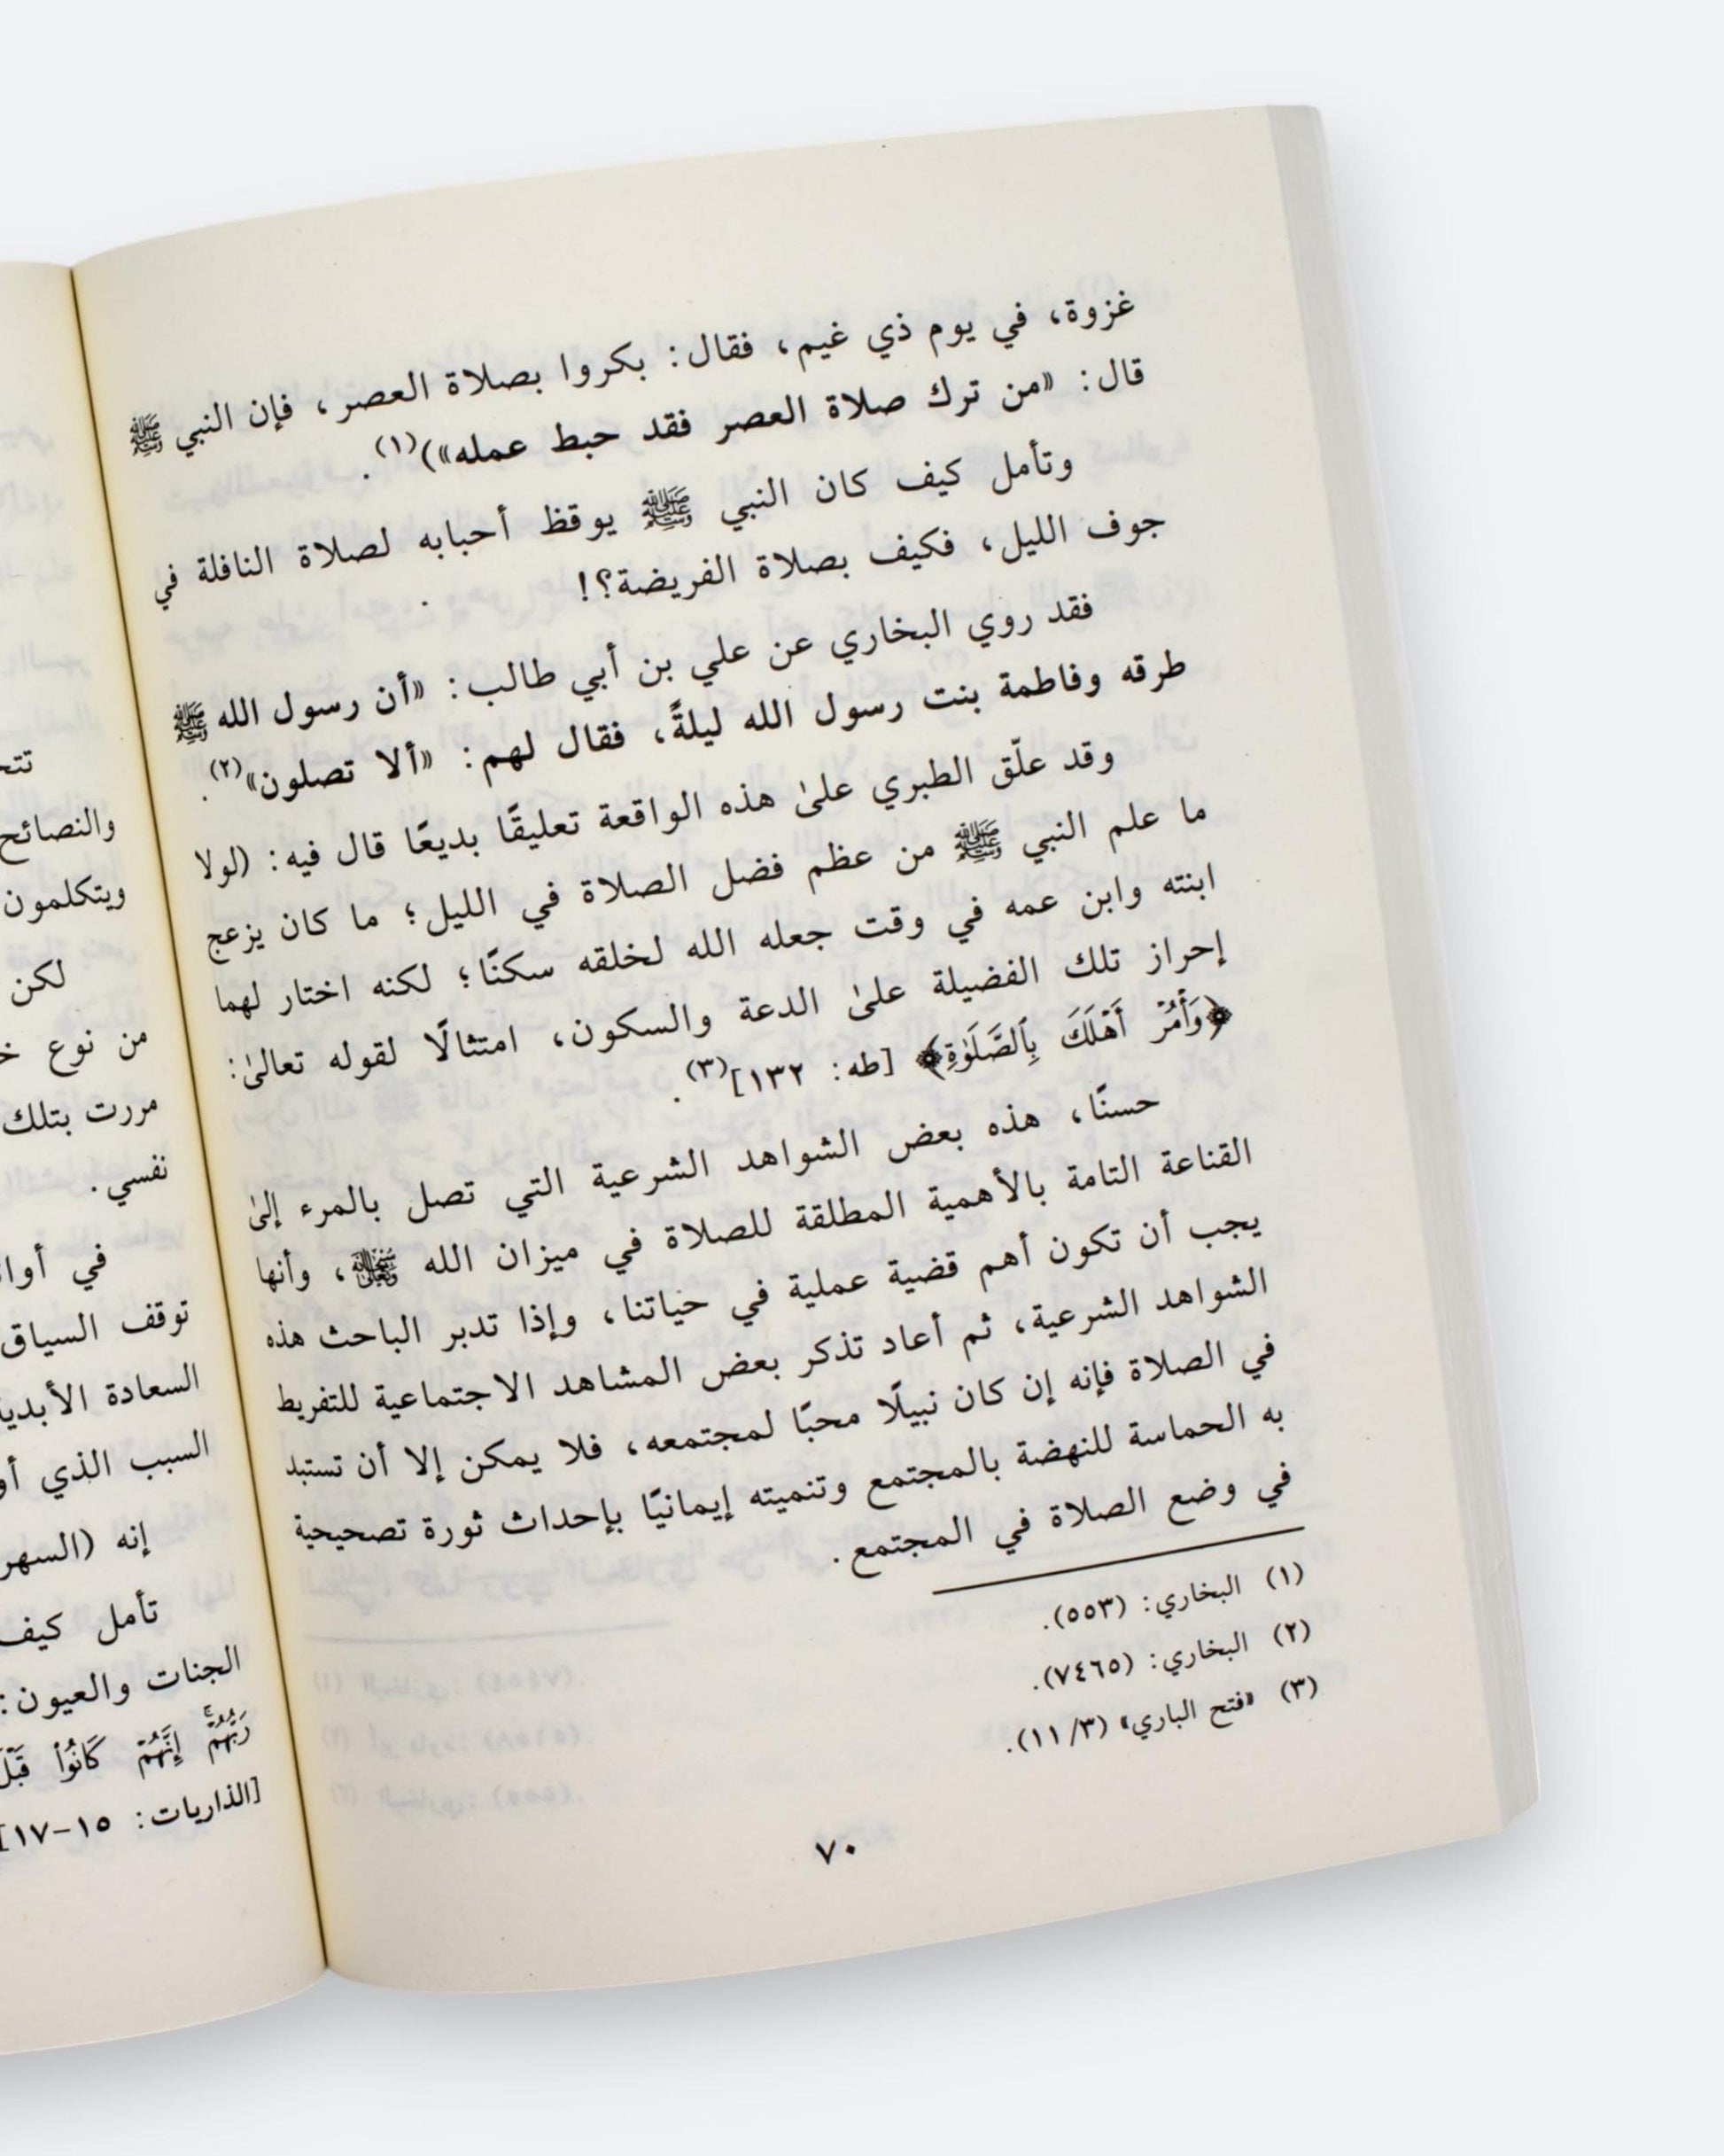 غزوة، في يوم ذي غيم، فقال: بكروا بصلاة العصر، فإن النبي ﷺ
قال: «من ترك صلاة العصر فقد حبط عمله»)(١).
وتأمل كيف كان النبي ﷺ يوقظ أحبابه لصلاة النافلة في
جوف الليل، فكيف بصلاة الفريضة؟!
فقد روي البخاري عن علي بن أبي طالب: «أن رسول الله ﷺ
طرقه وفاطمة بنت رسول الله ليلةً، فقال لهم: «ألا تصلون»(٢).
وقد علّق الطبري علىٰ هذه الواقعة تعليقًا بديعًا قال فيه: (لولا
ما علم النبي ﷺ من عظم فضل الصلاة في الليل؛ ما كان يزعج
ابنته وابن عمه في وقت جعله الله لخلقه سكنًا؛ لكنه اختار لهما
إحراز تلك الفضيلة علىٰ الدعة والسكون، امتثالًا لقوله تعالىٰ:
﴿وَأْمُرْ أَهْلَكَ بِٱلصَّلَوٰةِ﴾ [طه: ١٣٢](٣).
حسنًا، هذه بعض الشواهد الشرعية التي تصل بالمرء إلىٰ
القناعة التامة بالأهمية المطلقة للصلاة في ميزان الله ، وأنها
يجب أن تكون أهم قضية عملية في حياتنا، وإذا تدبر الباحث هذه
الشواهد الشرعية، ثم أعاد تذكر بعض المشاهد الاجتماعية للتفريط
في الصلاة فإنه إن كان نبيلًا محبًا لمجتمعه، فلا يمكن إلا أن تستبد
به الحماسة للنهضة بالمجتمع وتنميته إيمانيًا بإحداث ثورة تصحيحية
في وضع الصلاة في المجتمع.
(١) البخاري: (٥٥٣).
(٢) البخاري: (٧٤٦٥).
(٣) «فتح الباري» (١١/٣).
٧٠
والنصائح
ويتكلمون
لكن
من نوع
مررت بتلك
نفسي.
في
توقف السياق
السعادة
السبب الذي
إنه (السهر
تأمل كيف
الجنات والعيون:
رَبُّهُمْ ۚ إِنَّهُمْ كَانُوا۟
[الذاريات: ١٥-١٧]